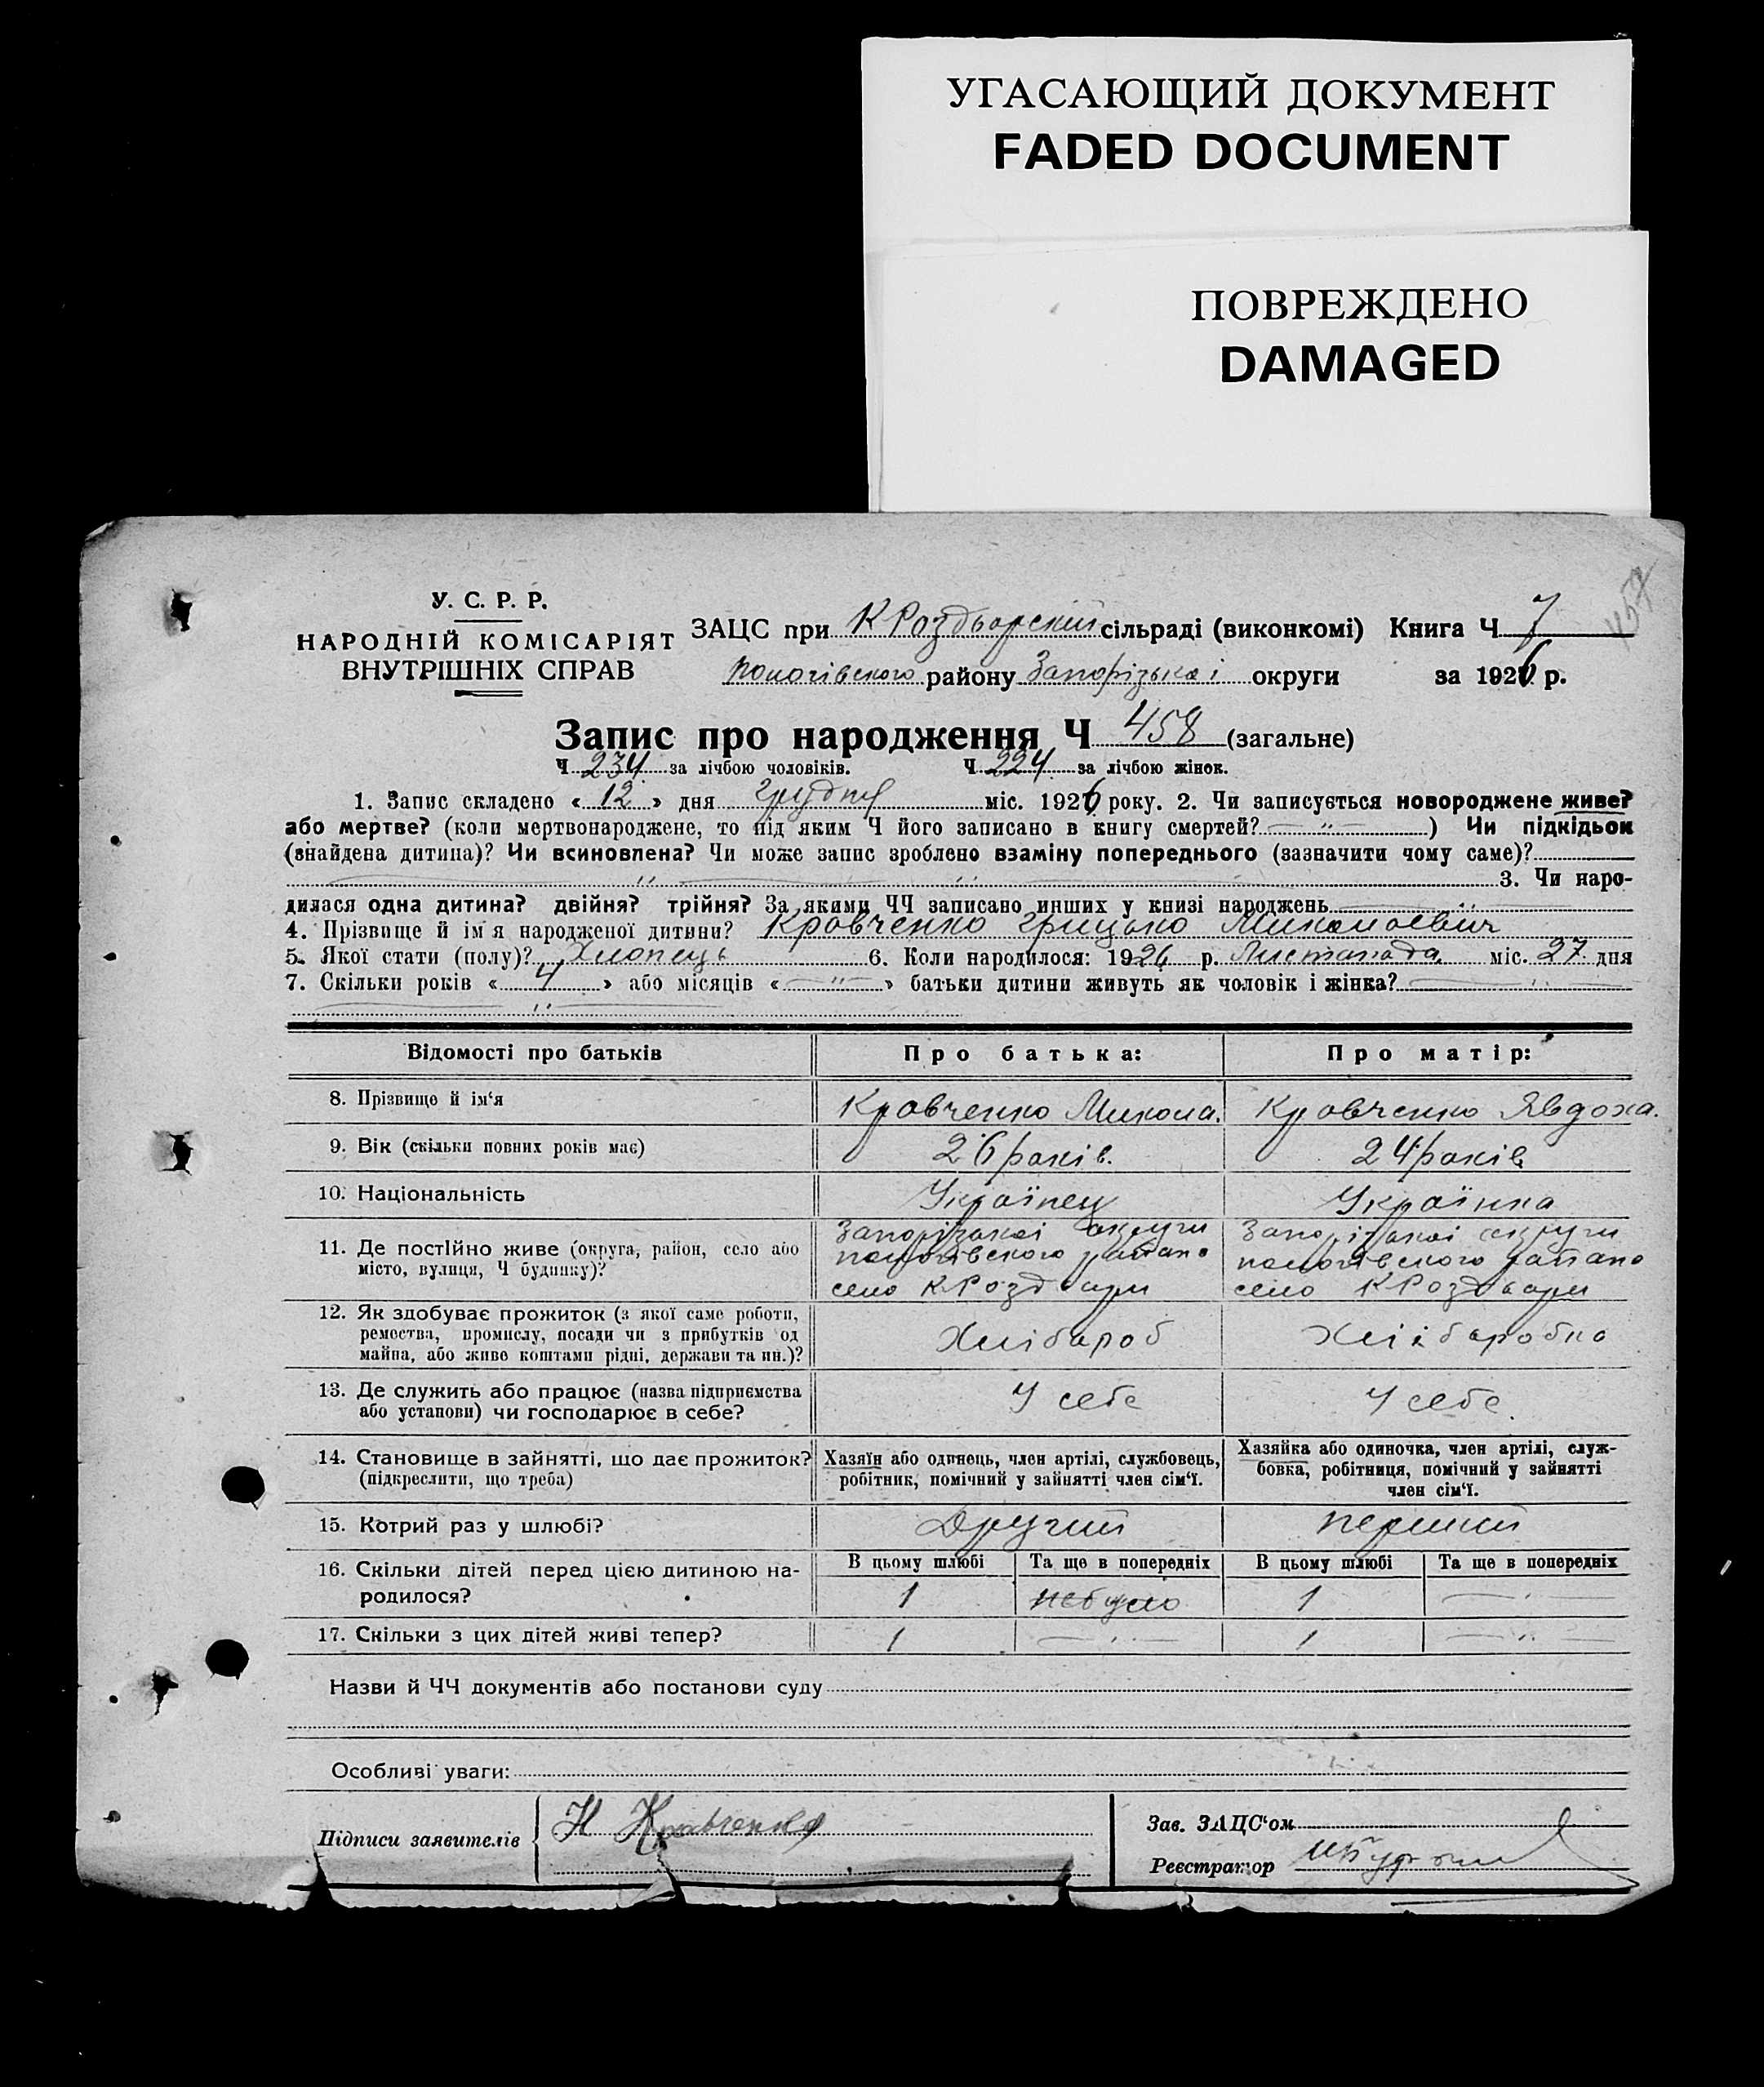 УГАСАЮЩИЙ ДОКУМЕНТ
FADED DOCUMENT
ПОВРЕЖДЕНО
DAMAGED
У. С. Р. Р.
НАРОДНІЙ КОМІСАРІЯТ
ВНУТРІШНІХ СПРАВ
ЗАЦС при К Роздборский сільраді (виконкомі) Книга Ч 7
пологівского району Запорізькаі округи за 1926 р.
Запис про народження Ч 458 (загальне)
Ч 234 за лічбою чоловіків. Ч 224 за лічбою жінок.
1. Запис складено « 12 » дня грудня міс. 1926 року. 2. Чи записується новороджене живе?
або мертве? (коли мертвонароджене, то під яким Ч його записано в книгу смертей? — " — ) Чи підкідьок
(знайдена дитина)? Чи всиновлена? Чи може запис зроблено взаміну попереднього (зазначити чому саме)?
— " — " — 3. Чи наро-
дилася одна дитина? двійня? трійня? За якими ЧЧ записано инших у книзі народжень — " —
4. Прізвище й ім'я народженої дитини? Кровченко Грицько Миколаевич
5. Якої стати (полу)? Хлопець 6. Коли народилося: 1926 р. Листапада міс. 27 дня
7. Скільки років « 4 » або місяців « — " — » батьки дитини живуть як чоловік і жінка? — " —
— " —
Відомості про батьків Про батька: Про матір:
8. Прізвище й ім'я Кровченко Микола. Кровченко Явдоха.
9. Вік (скільки повних років має) 26 років. 24 років
10. Національність Українец Українка
11. Де постійно живе (округа, район, село або
місто, вулиця, Ч будинку)?
Запорізькаі округи
пологівского район
село К Роздори
Запорізькаі округи
пологівского район
село К Роздори
12. Як здобуває прожиток (з якої саме роботи,
ремества, промислу, посади чи з прибутків од
майна, або живе коштами рідні, держави та ин.)?
Хлібароб Хліібаробка
13. Де служить або працює (назва підприємства
або установи) чи господарює в себе?
У себе У себе
14. Становище в зайнятті, що дає прожиток?
(підкреслити, що треба)
Хазяїн або одинець, член артілі, службовець,
робітник, помічний у зайнятті член сім'ї.
Хазяйка або одиночка, член артілі, служ-
бовка, робітниця, помічний у зайнятті
член сім'ї.
15. Котрий раз у шлюбі? Другий перший
16. Скільки дітей перед цією дитиною на-
родилося?
В цьому шлюбі Та ще в попередніх В цьому шлюбі Та ще в попередніх
1 небуло 1 — " —
17. Скільки з цих дітей живі тепер? 1 — " — 1 — " —
Назви й ЧЧ документів або постанови суду
Особливі уваги:
Підписи заявителів Н Кравченко
Зав. ЗАЦС'ом
Реєстратор